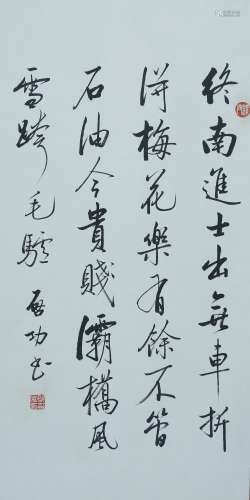 終南進士出無車折
得梅花樂有餘不管
石油今貴賤灞橋風
雪跨毛驢
啟功書